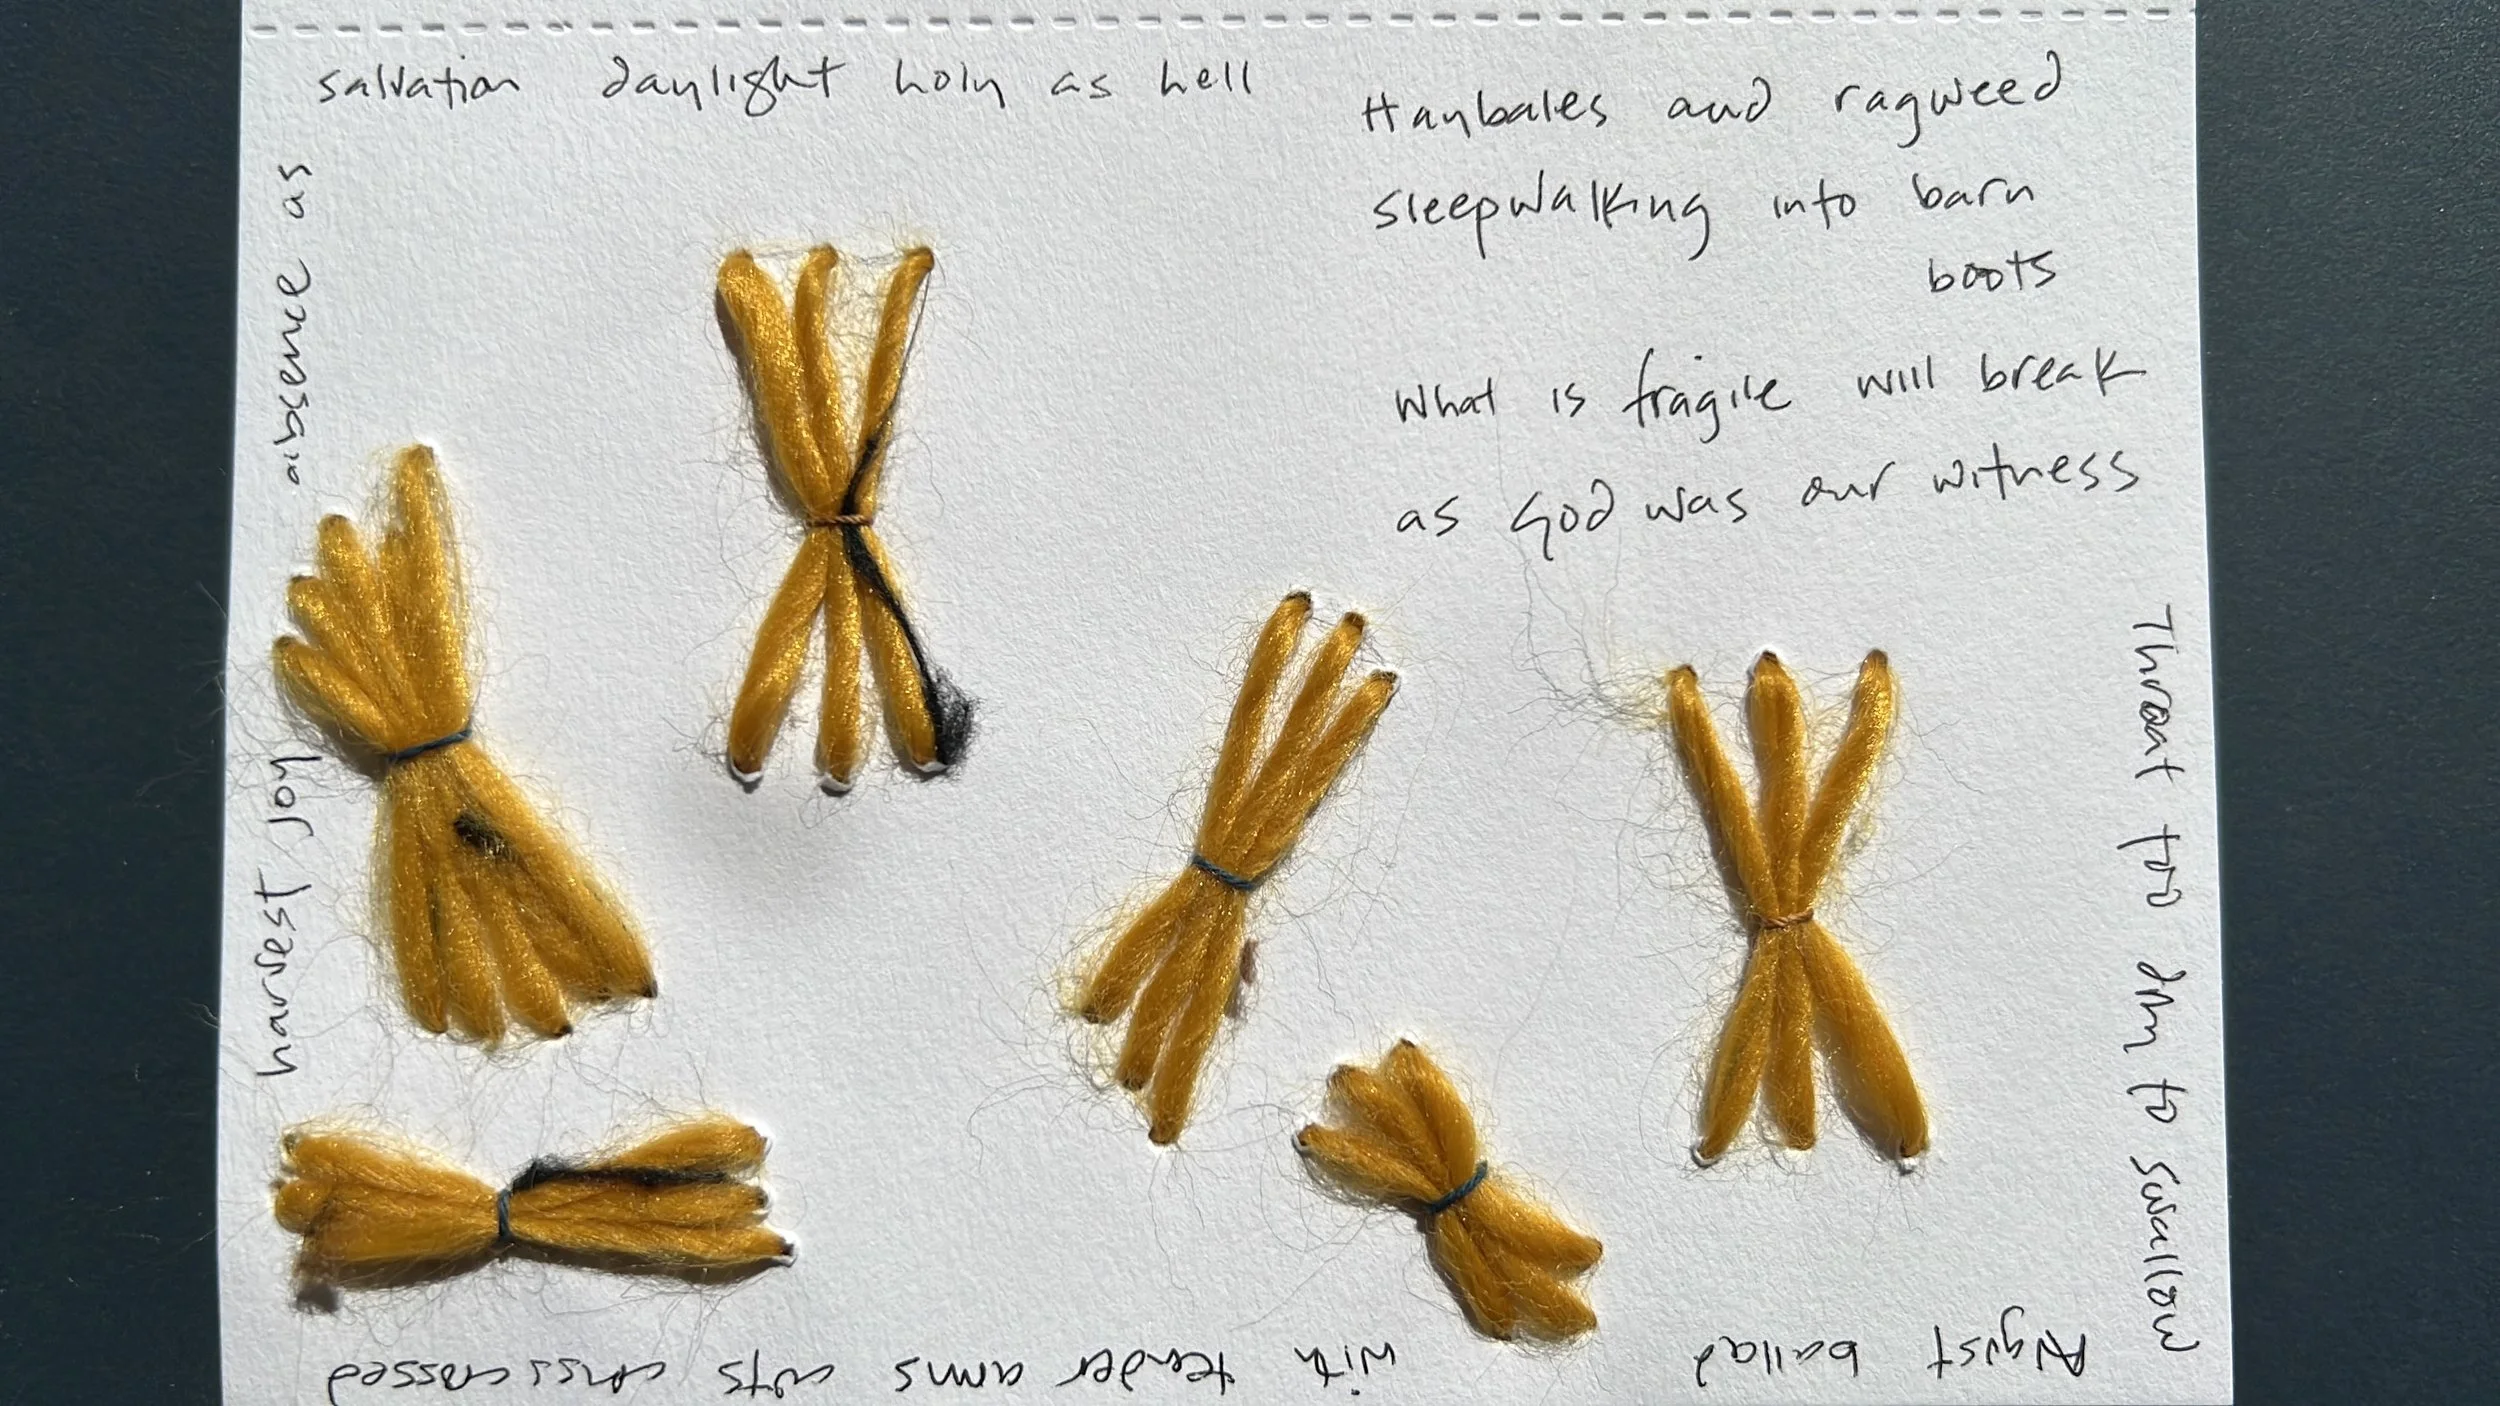 Haybales and ragweed
sleepwalking into barn
boots
What is fragile will break
as God was our witness
Throat too dry to swallow
August ballad with tender arms cuts crisscrossed
harvest joy absence as
salvation daylight holy as hell